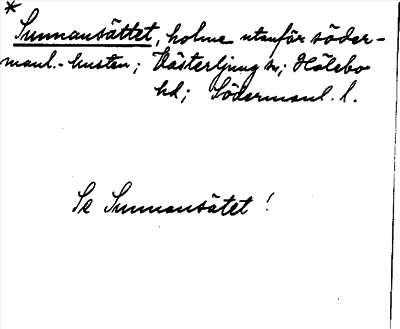 *
Sunnansättet, holme utanför söder-
manl.-kusten; Västerljung sn; Hölebo
hd; Södermanl. l.
Se Sunnansätet!